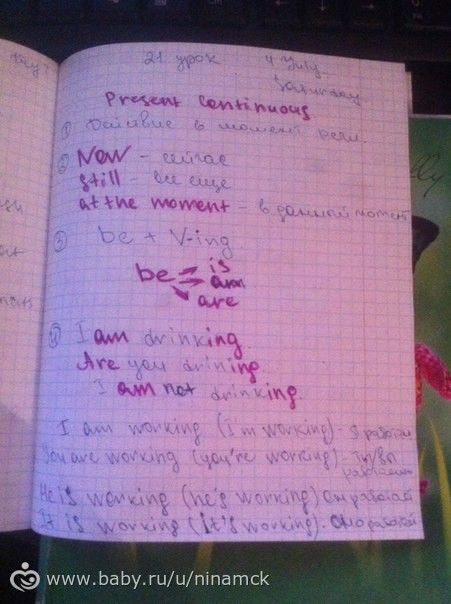 21 урок 4 July
Saturday
Present continuous
① Действие в момент речи.
② Now - сейчас
still - все еще
at the moment - в данный момент
③ be + V-ing
be is
am
are
④ I am drinking
Are you drining
I am not drinking
I am working (I'm working) - я работаю
You are working (you're working) - Ты/вы
работаешь
He is working (he's working) Он работает
It is working (it's working) - Оно работает
www.baby.ru/u/ninamck